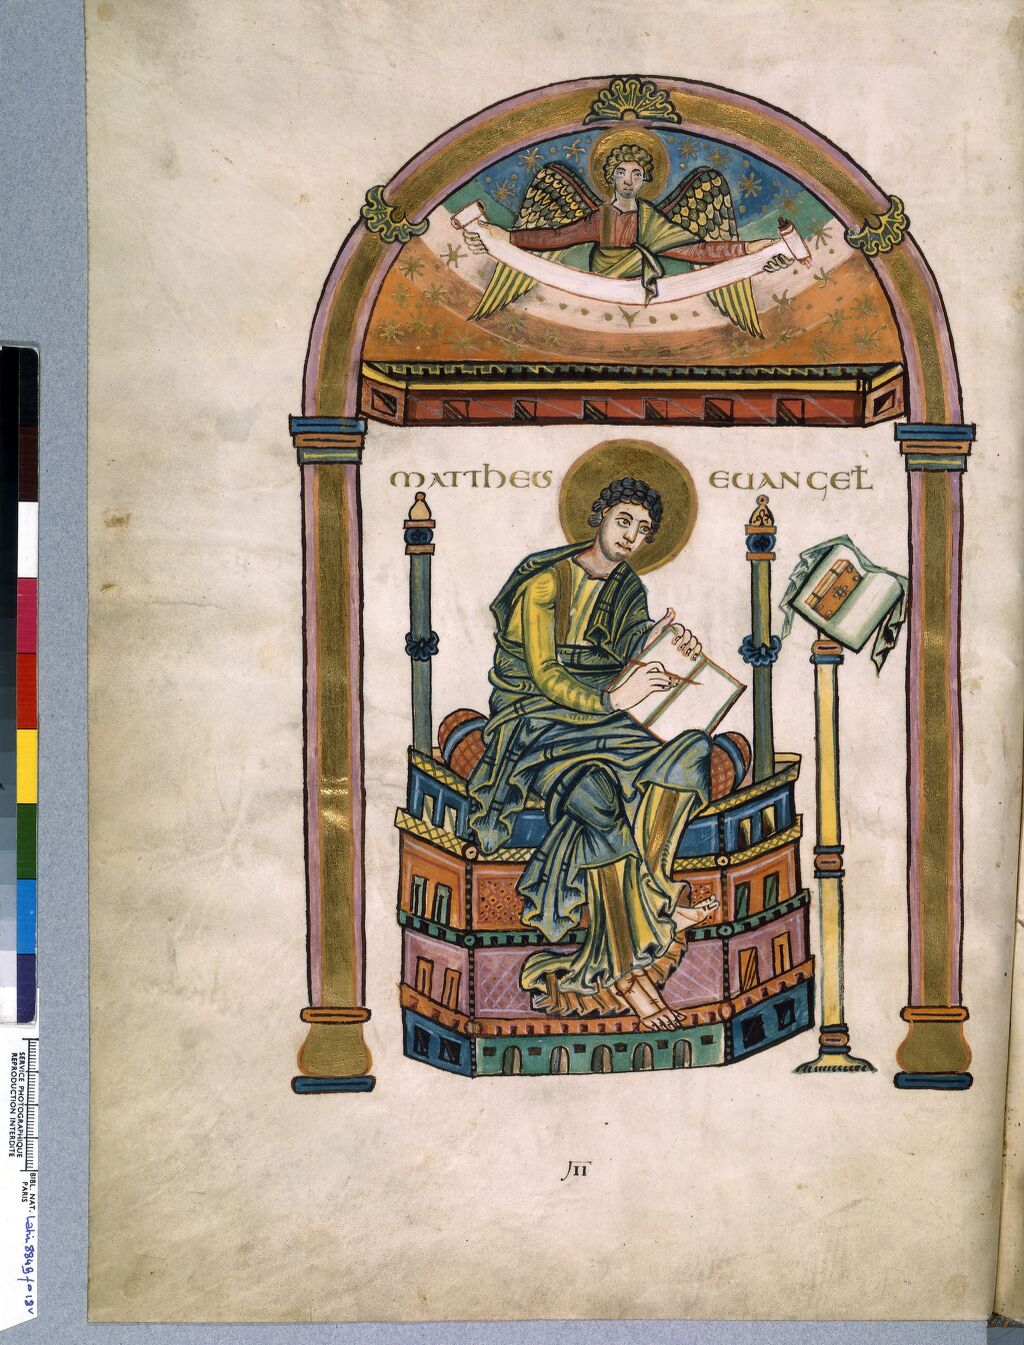 MATTHEUS EUANGEL
II
SERVICE PHOTOGRAPHIQUE
REPRODUCTION INTERDITE
BIBL. NAT.
PARIS
Latin 8849 fo 18v